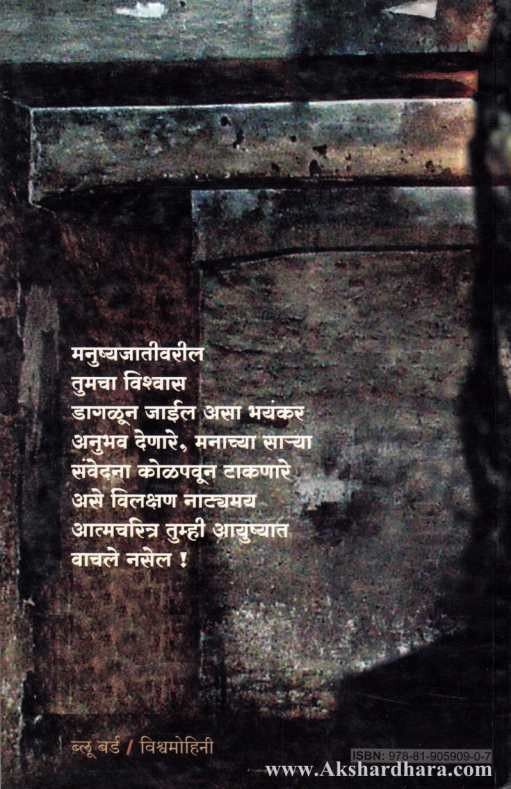 मनुष्यजातीवरील
तुमचा विश्वास
डागळून जाईल असा भयंकर
अनुभव देणारे, मनाच्या साऱ्या
संवेदना कोळपवून टाकणारे
असे विलक्षण नाट्यमय
आत्मचरित्र तुम्ही आयुष्यात
वाचले नसेल !
ब्लू बर्ड / विश्वमोहिनी
ISBN: 978-81-905909-0-7
www.Akshardhara.com